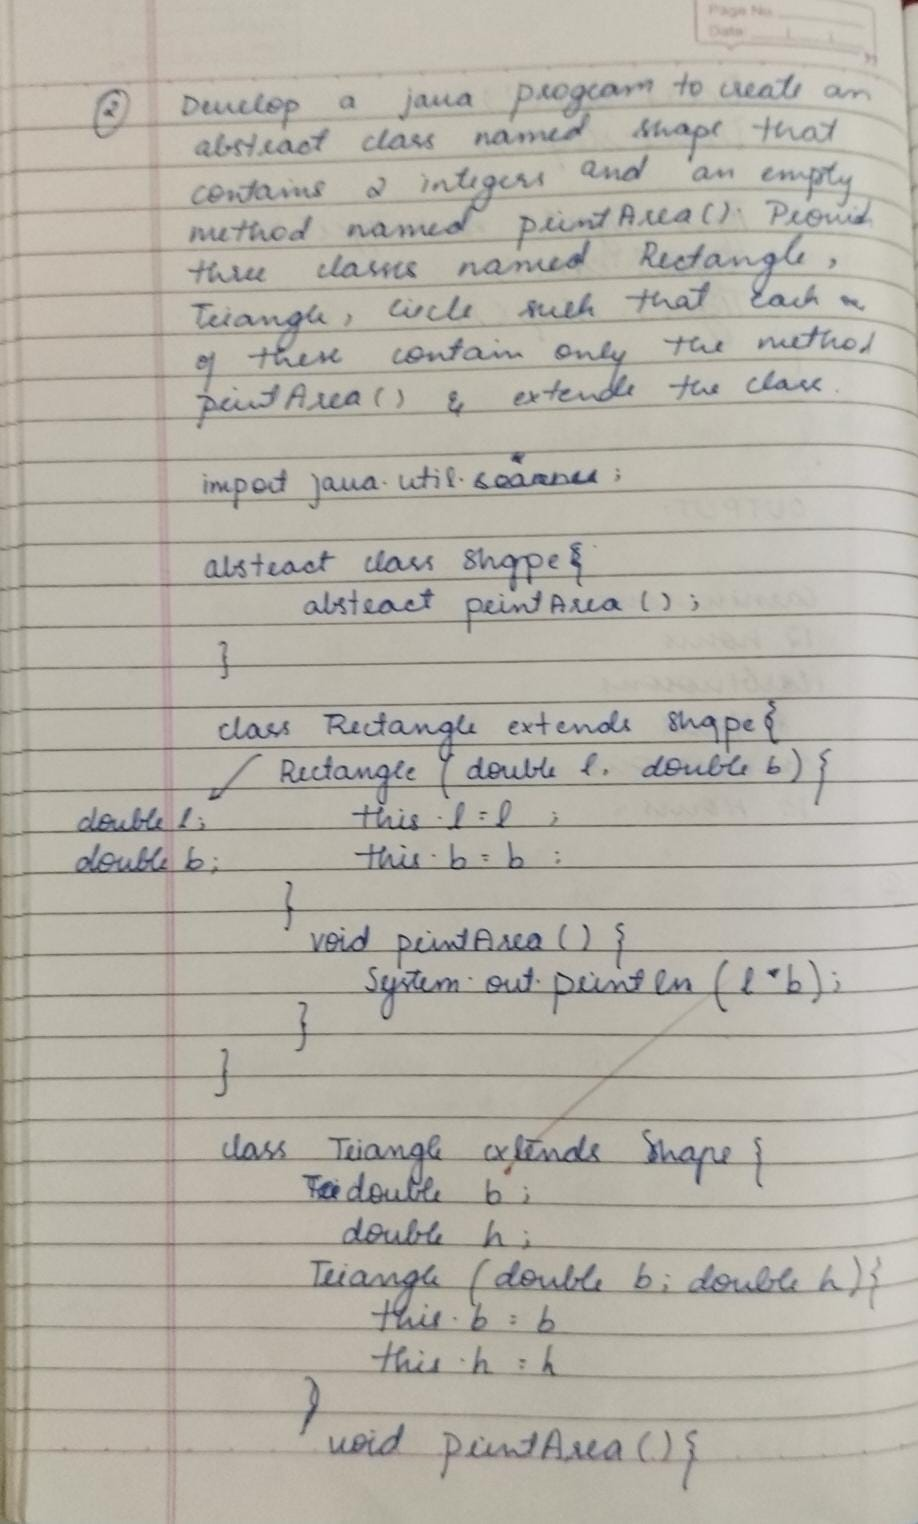 Page No.
Date:
② Develop a java program to create an
abstract class named shape that
contains 2 integers and an empty
method named printArea(). Provid
three classes named Rectangle,
Triangle, circle such that each
of these contain only the method
printArea() & extends the class.
import java.util.*;
abstract class Shape{
abstract printArea();
}
class Rectangle extends Shape{
Rectangle (double l, double b) {
double l; this.l = l ;
double b; this.b = b ;
}
void printArea() {
System.out.println (l*b);
}
}
class Triangle extends Shape {
double b;
double h;
Triangle (double b; double h){
this.b = b
this.h = h
}
void printArea(){